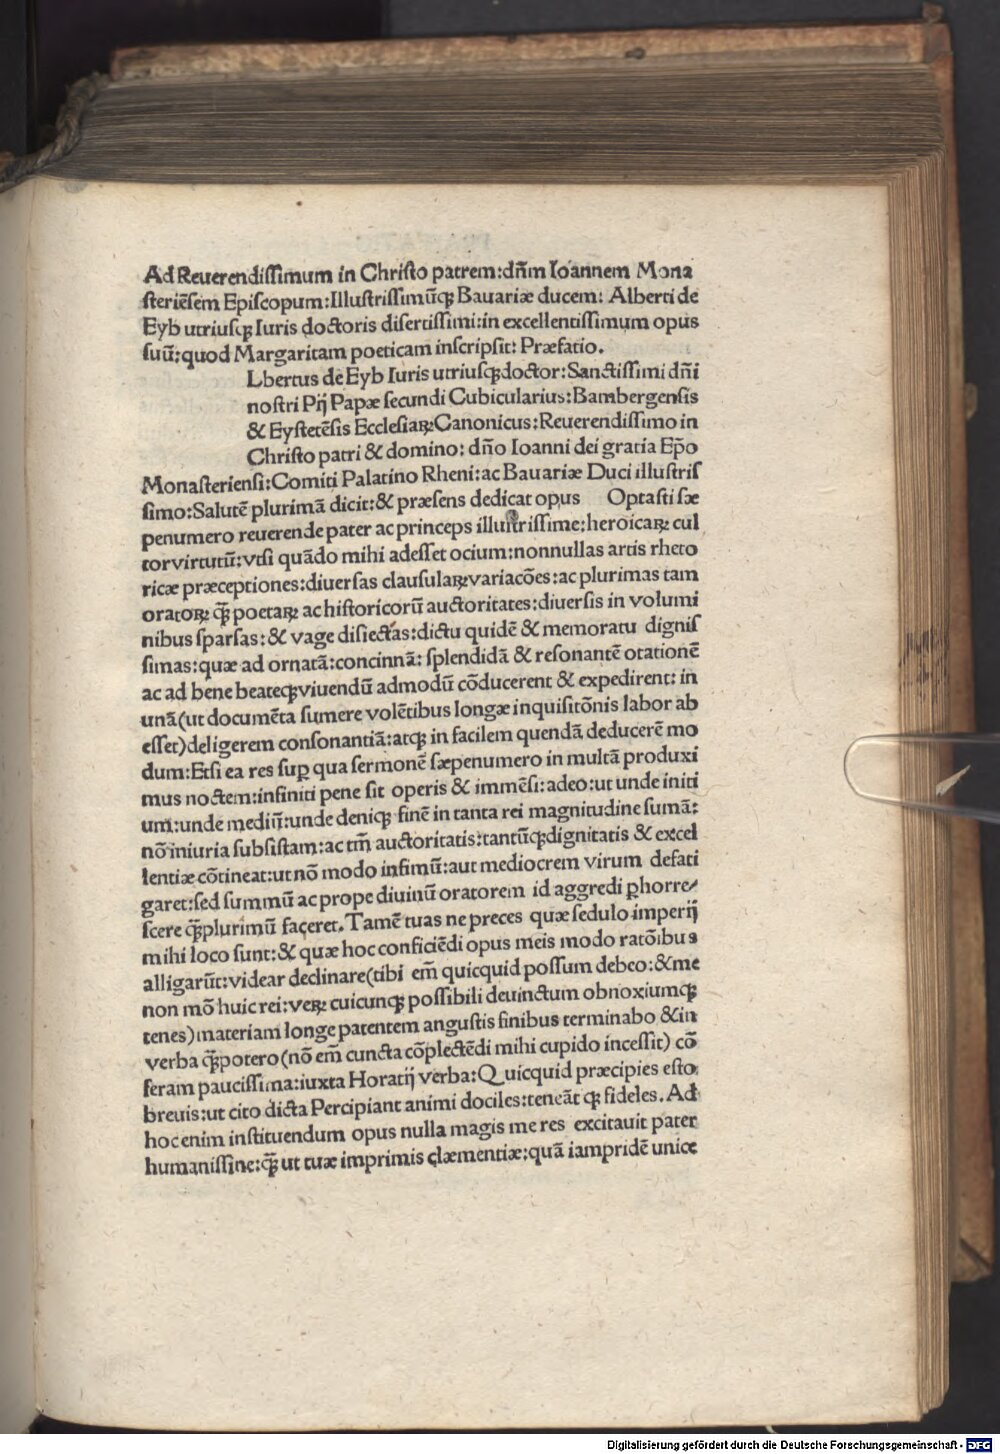 Ad Reuerendissimum in Christo patrem:dñm Ioannem Mona
steriẽsem Episcopum:Illustrissimũqꝫ Bauariæ ducem: Alberti de
Eyb utriusqꝫ Iuris doctoris disertissimi:in excellentissimum opus
suũ:quod Margaritam poeticam inscripsit: Præfatio.
Lbertus de Eyb Iuris utriusqꝫdoctor:Sanctissimi dñi
nostri Pij Papæ secundi Cubicularius:Bambergensis
& Eystetẽsis Ecclesiaꝝ:Canonicus:Reuerendissimo in
Christo patri & domino: dño Ioanni dei gratia Ep̃o
Monasteriensi:Comiti Palatino Rheni:ac Bauariæ Duci illustris
simo:Salutẽ plurimã dicit:& præsens dedicat opus Optasti sæ
penumero reuerende pater ac princeps illustrissime:heroicaꝝ cul
tor virtutũ:vtsi quãdo mihi adesset ocium:nonnullas artis rheto
ricæ præceptiones:diuersas clausulaꝝ variacões:ac plurimas tam
oratoꝝ q̃ꝫ poetaꝝ ac historicorũ auctoritates:diuersis in volumi
nibus sparsas:& vage disiectas:dictu quidẽ & memoratu dignis
simas:quæ ad ornatã:concinnã: splendidã & resonantẽ orationẽ
ac ad bene beateqꝫ viuendũ admodũ cõducerent & expedirent: in
unã(ut documẽta sumere volẽtibus longæ inquisitõnis labor ab
esset)deligerem consonantiã:atqꝫ in facilem quendã deducerẽ mo
dum:Etsi ea res suꝑ qua sermonẽ sæpenumero in multã produxi
mus noctem:infiniti pene sit operis & immẽsi:adeo:ut unde initi
um:unde mediũ:unde deniqꝫ finẽ in tanta rei magnitudine sumã:
nõ iniuria subsistam:ac tm̃ auctoritatis:tantũqꝫ dignitatis & excel
lentiæ cõtineat:ut nõ modo infimũ:aut mediocrem virum defati
garet:sed summũ ac prope diuinũ oratorem id aggredi ꝑhorre⸗
scere q̃ꝫplurimũ faceret. Tamẽ tuas ne preces quæ sedulo imperij
mihi loco sunt:& quæ hoc conficiẽdi opus meis modo ratõibus
alligarũt:videar declinare(tibi em̃ quicquid possum debeo:&me
non mõ huic rei:veꝝ cuicunqꝫ possibili deuinctum obnoxiumqꝫ
tenes)materiam longe patentem angustis finibus terminabo &in
verba q̃ꝫpotero(nõ em̃ cuncta cõplectẽdi mihi cupido incessit) cõ
feram paucissima:iuxta Horatij verba:Quicquid præcipies esto
breuis:ut cito dicta Percipiant animi dociles:teneãt qꝫ fideles. Ad
hoc enim instituendum opus nulla magis me res excitauit pater
humanissine:q̃ꝫ ut tuæ imprimis clæmentiæ:quã iampridẽ unice
Digitalisierung gefördert durch die Deutsche Forschungsgemeinschaft - DFG